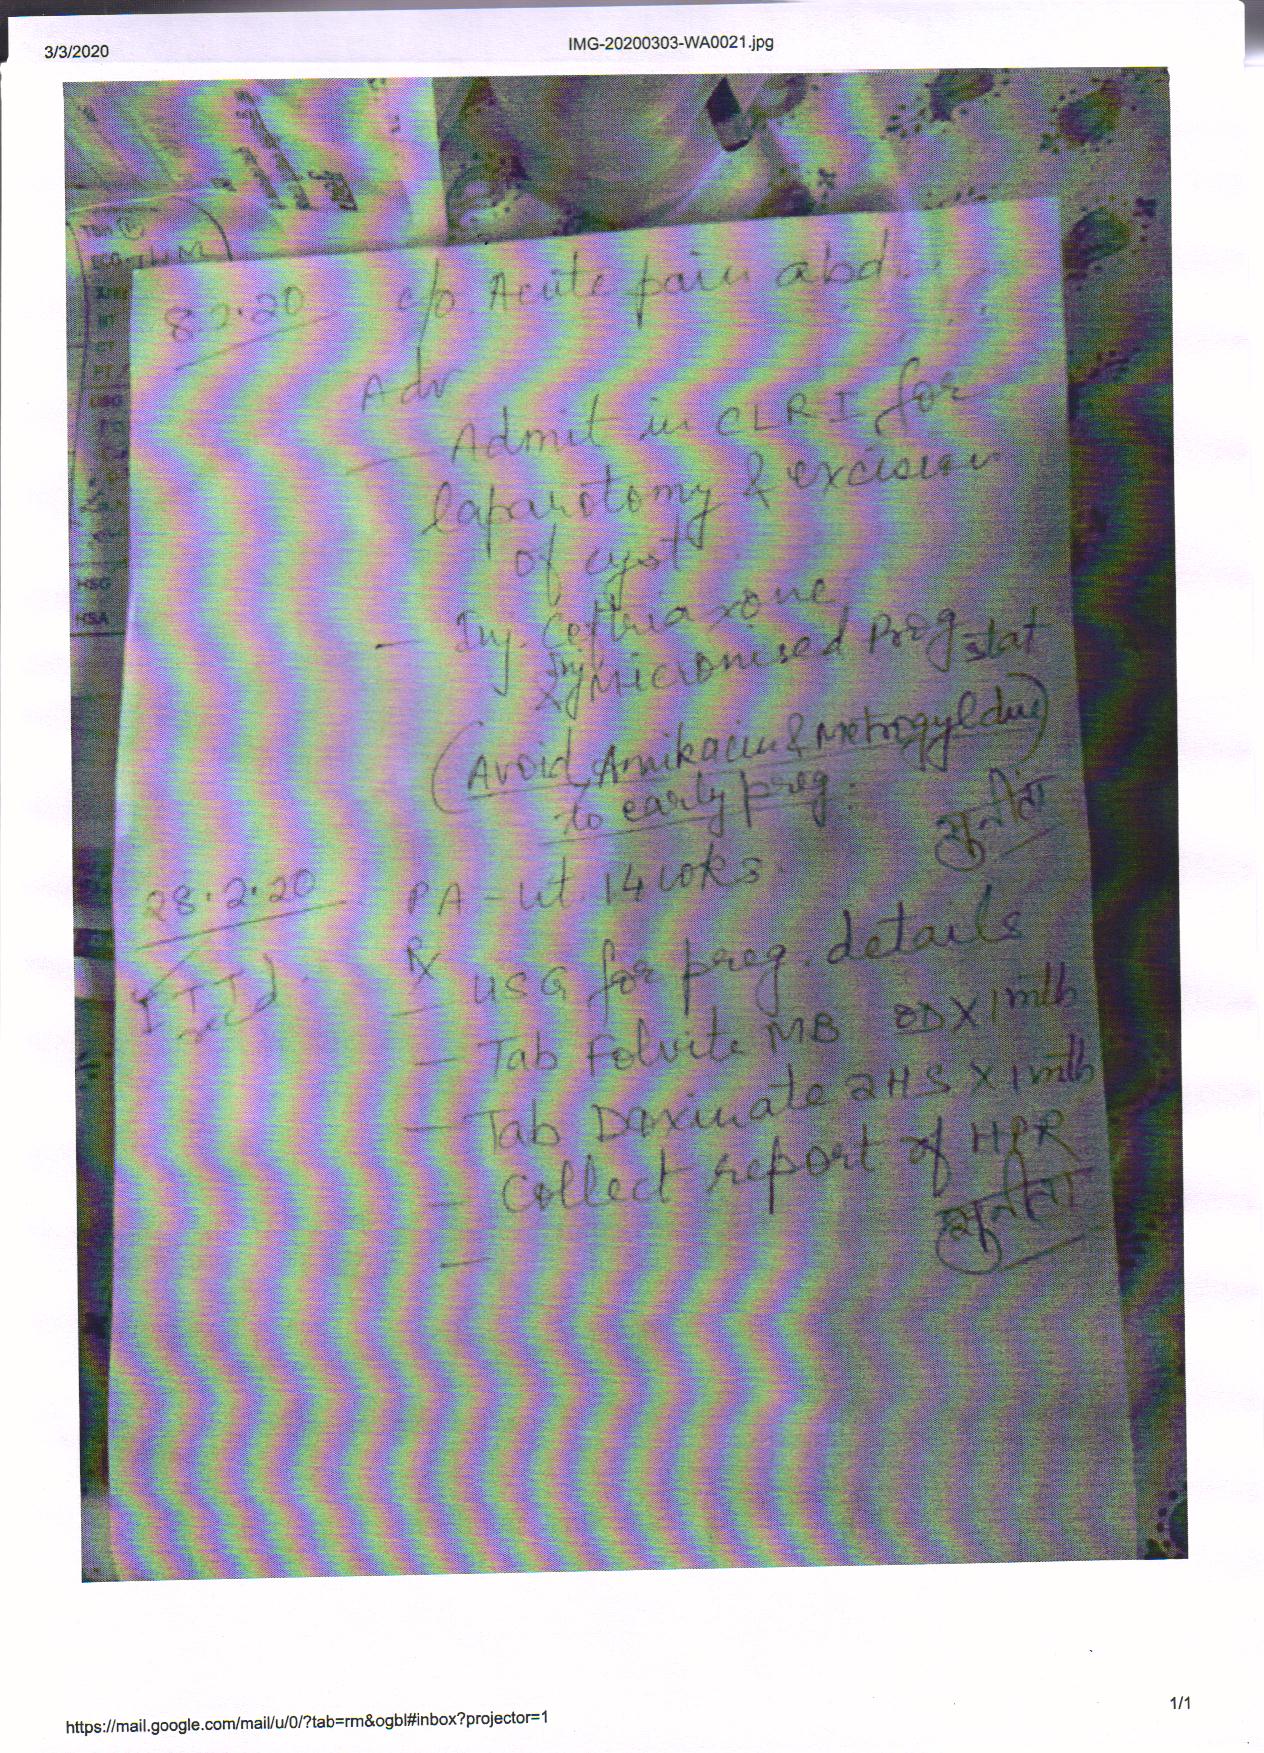 3/3/2020
IMG-20200303-WA0021.jpg
ECG
CT
PT
USG
HSG
HSA
8.2.20 c/o. Acute pain abd.
Adv
— Admit in CLRI for
laparotomy & excision
of cyst
— Inj. Ceftriaxone
& Inj Micronised Prog stat
(Avoid Amikacin & Metrogyl due)
to early preg.
सुनीता
28.2.20 PA - ut. 14 wks.
Rx
— USG for preg. details
— Tab Folvite MB BD X 1 mth
— Tab Doxinate 2HS X 1 mth
— Collect report of HPR
—
सुनीता
https://mail.google.com/mail/u/0/?tab=rm&ogbl#inbox?projector=1
1/1